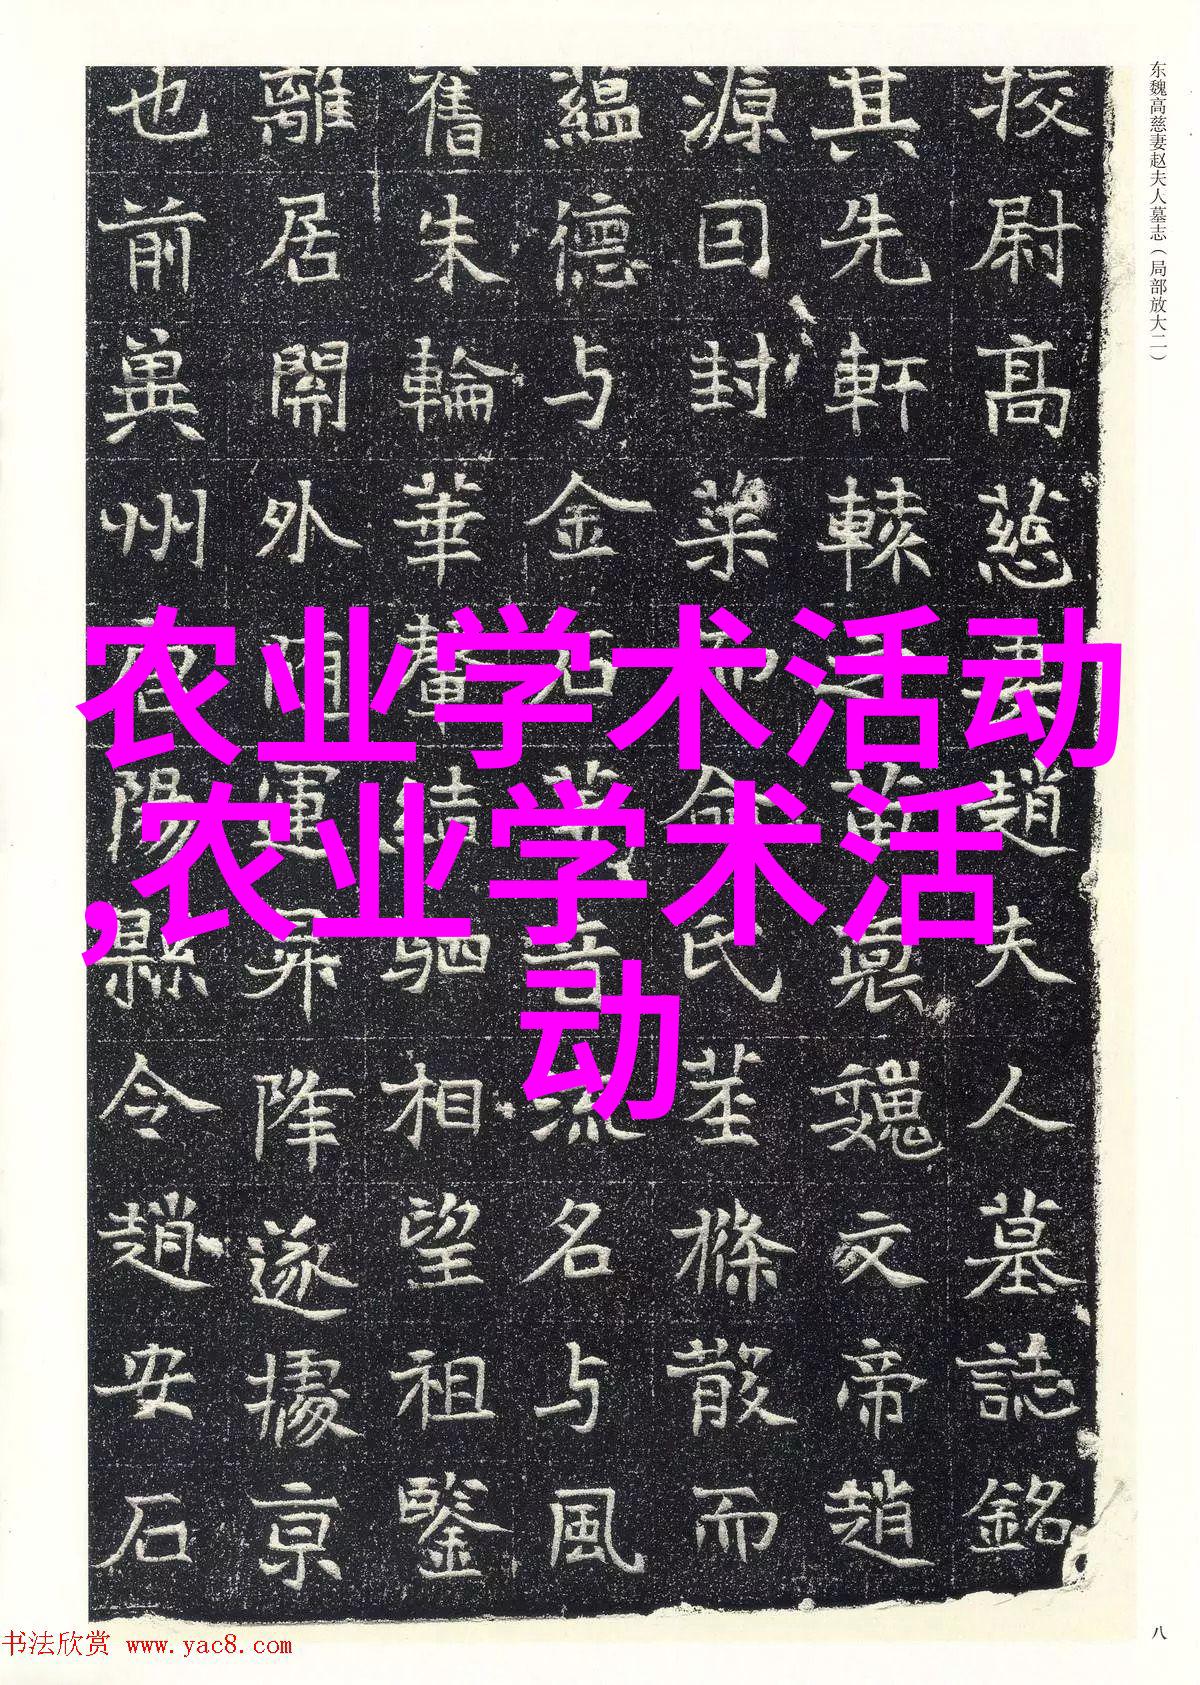 东魏高慈妻赵夫人墓志（局部放大二）
挍尉高慈妻趙夫人墓誌銘
其先軒轅之苗裔魏文帝趙
源囙封而命氏茎條散而
蕴德与金石音流名与風
舊朱輪華轂結駟相望祖鑒
離居開外随運昇降遂據京
也前冀州陽縣令趙安石
农业学术活动
,农业学术活
动
八
书法欣赏 www.yac8.com